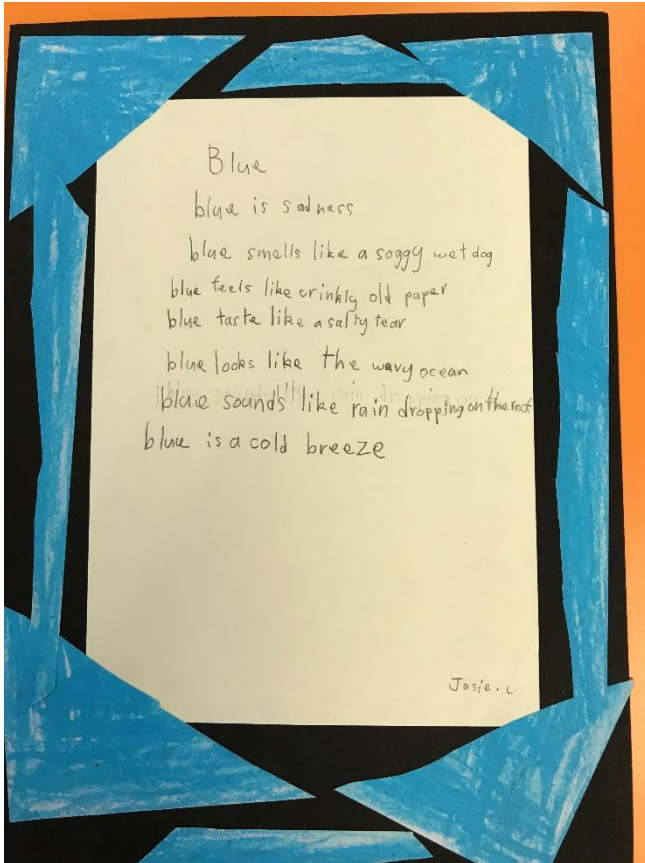 Blue
blue is sadness
blue smells like a soggy wet dog
blue feels like crinkly old paper
blue taste like a salty tear
blue looks like the wavy ocean
blue sounds like rain dropping on the roof
blue is a cold breeze
Josie.c